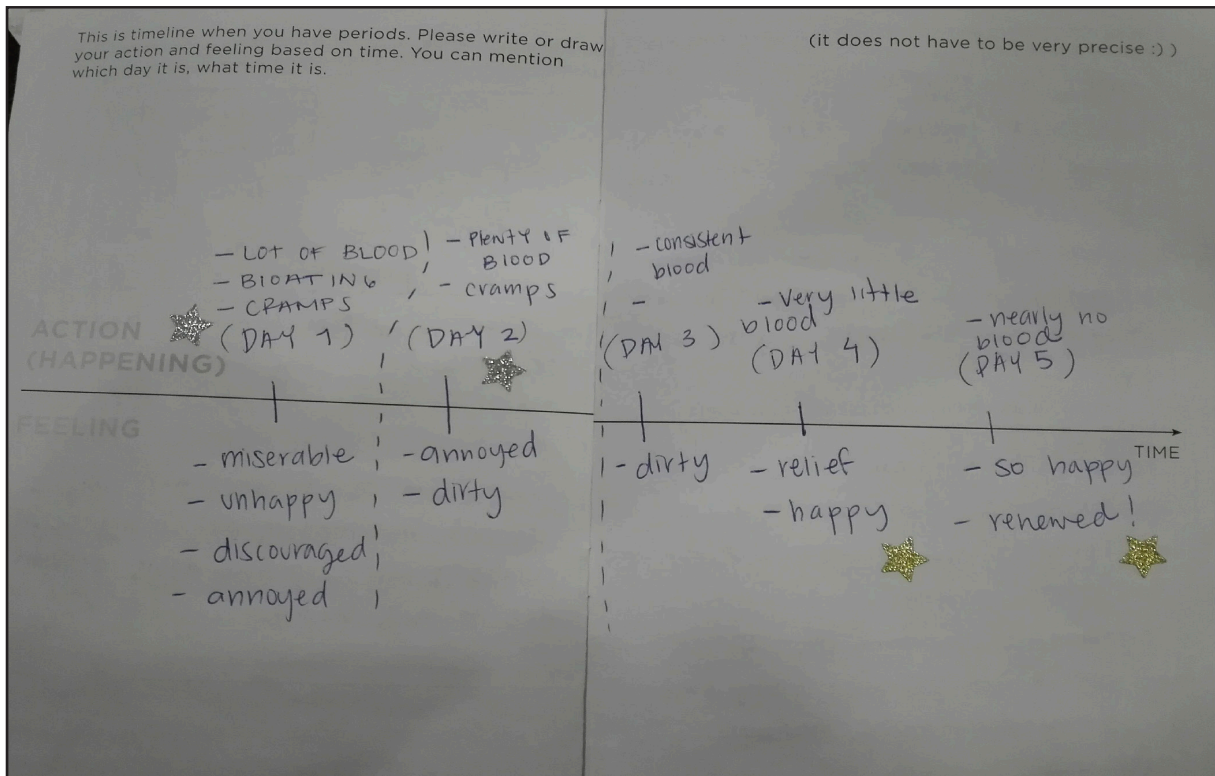 This is timeline when you have periods. Please write or draw
your action and feeling based on time. You can mention
which day it is, what time it is.
(it does not have to be very precise :) )
ACTION
(HAPPENING)
- LOT OF BLOOD
- BLOATING
- CRAMPS
(DAY 1)
- Plenty OF
BLOOD
- cramps
(DAY 2)
- consistent
blood
-
(DAY 3)
- Very little
blood
(DAY 4)
- nearly no
blood
(DAY 5)
TIME
FEELING
- miserable
- unhappy
- discouraged
- annoyed
- annoyed
- dirty
- dirty
- relief
- happy
- so happy
- renewed!